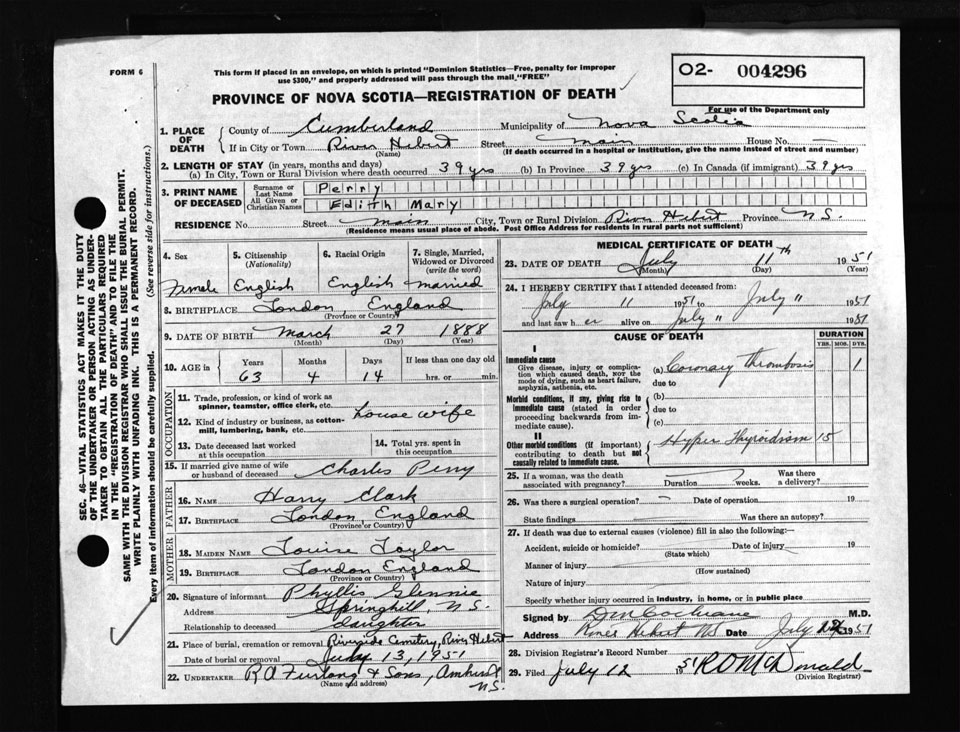 FORM 6
This form if placed in an envelope, on which is printed "Dominion Statistics—Free, penalty for improper
use $300," and properly addressed will pass through the mail "FREE"
02- 004296
For use of the Department only
PROVINCE OF NOVA SCOTIA—REGISTRATION OF DEATH
SEC. 46—VITAL STATISTICS ACT MAKES IT THE DUTY
OF THE UNDERTAKER OR PERSON ACTING AS UNDER-
TAKER TO OBTAIN ALL THE PARTICULARS REQUIRED
IN THE "REGISTRATION OF DEATH" AND TO FILE THE
SAME WITH THE DIVISION REGISTRAR WHO SHALL ISSUE THE BURIAL PERMIT.
WRITE PLAINLY WITH UNFADING INK. THIS IS A PERMANENT RECORD.
Every item of information should be carefully supplied. (See reverse side for instructions.)
1. PLACE OF DEATH County of Cumberland Municipality of Nova Scotia
If in City or Town River Hebert Street Main House No. —
(Name) (If death occurred in a hospital or institution, give the name instead of street and number)
2. LENGTH OF STAY (in years, months and days)
(a) In City, Town or Rural Division where death occurred 39 yrs (b) In Province 39 yrs (c) In Canada (if immigrant) 39 yrs
3. PRINT NAME OF DECEASED Surname or Last Name Perry
All Given or Christian Names Edith Mary
RESIDENCE No. Street Main City, Town or Rural Division River Hebert Province N.S.
(Residence means usual place of abode. Post Office Address for residents in rural parts not sufficient)
4. Sex 5. Citizenship (Nationality) 6. Racial Origin 7. Single, Married, Widowed or Divorced (write the word)
Female English English Married
8. BIRTHPLACE London England
(Province or Country)
9. DATE OF BIRTH March 27 1888
(Month) (Day) (Year)
10. AGE in Years Months Days If less than one day old
63 4 14 hrs. or min.
OCCUPATION
11. Trade, profession, or kind of work as
spinner, teamster, office clerk, etc.
housewife
12. Kind of industry or business, as cotton-
mill, lumbering, bank, etc.
13. Date deceased last worked
at this occupation
14. Total yrs. spent in
this occupation
15. If married give name of wife
or husband of deceased Charles Perry
FATHER
16. NAME Harry Clark
17. BIRTHPLACE London, England
(Province or Country)
MOTHER
18. MAIDEN NAME Louise Taylor
19. BIRTHPLACE London England
(Province or Country)
20. Signature of informant Phyllis Glennie
Address Springhill, N.S.
Relationship to deceased daughter
21. Place of burial, cremation or removal Riverside Cemetery, River Hebert
Date of burial or removal July 13, 1951
22. UNDERTAKER R A Furlong & Sons, Amherst
N.S.
(Name and address)
MEDICAL CERTIFICATE OF DEATH
23. DATE OF DEATH July 11th 1951
(Month) (Day) (Year)
24. I HEREBY CERTIFY that I attended deceased from:
July 11 1951 to July 11 1951
and last saw her alive on July 11 1951
CAUSE OF DEATH DURATION
YRS. MOS. DYS.
I
Immediate cause
Give disease, injury or complica-
tion which caused death, NOT the
mode of dying, such as heart failure,
asphyxia, asthenia, etc.
(a) Coronary thrombosis 1
due to
Morbid conditions, if any, giving rise to
immediate cause (stated in order
proceeding backwards from im-
mediate cause).
(b)
due to
(c)
II
Other morbid conditions (if important)
contributing to death but not
causally related to immediate cause.
Hyper Thyroidism 15
25. If a woman, was the death
associated with pregnancy? Duration weeks. Was there
a delivery?
26. Was there a surgical operation? — Date of operation 19
State findings Was there an autopsy?
27. If death was due to external causes (violence) fill in also the following:—
Accident, suicide or homicide? Date of injury 19
(State which)
Manner of injury
(How sustained)
Nature of injury
Specify whether injury occurred in industry, in home, or in public place
Signed by D M Cochrane M.D.
Address River Hebert NS Date July 12 1951
28. Division Registrar's Record Number
29. Filed July 12 1951 R O McDonald
(Division Registrar)